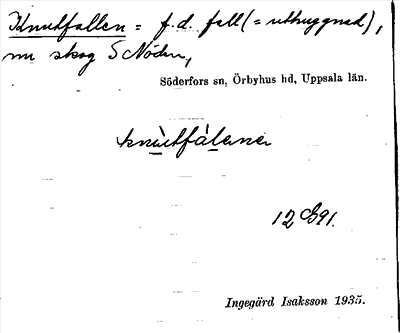 Knutfallen = f. d. fall (= uthuggnad),
nu skog S Nöden,
Söderfors sn, Örbyhus hd, Uppsala län.
knùtfàlana
12 G 91.
Ingegärd Isaksson 1935.